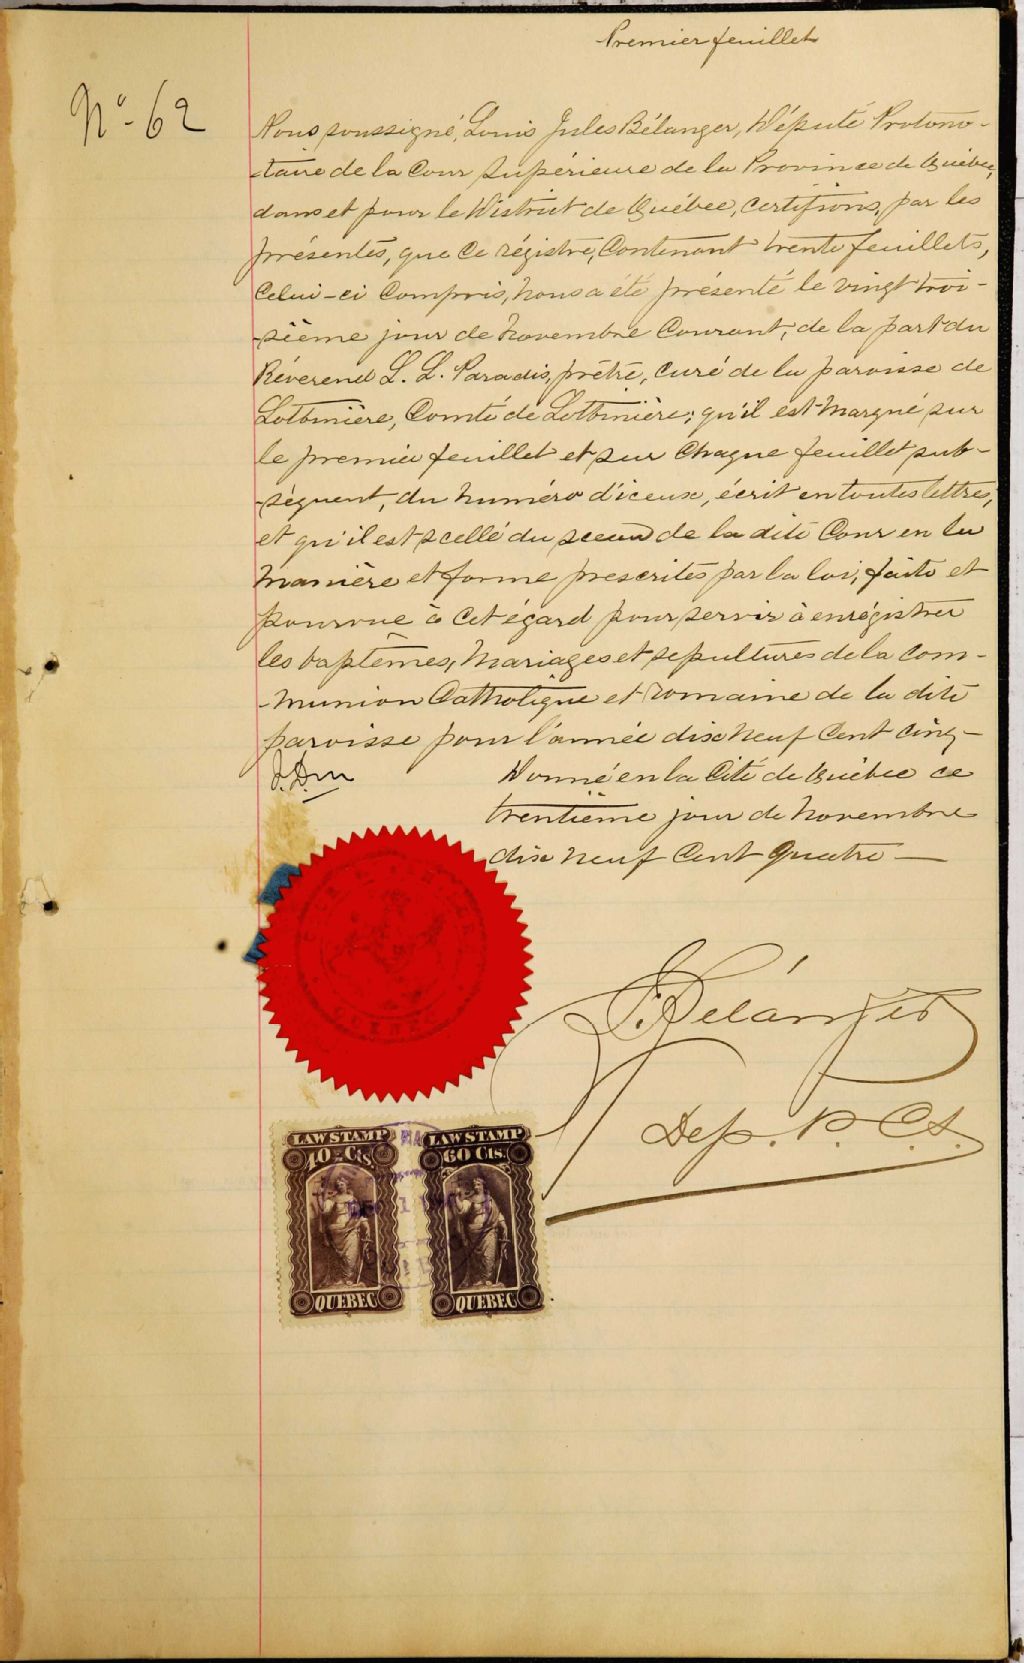 Premier feuillet
No- 62
Nous soussigné, Louis Jules Bélanger, Député Protono-
-taire de la Cour Supérieure de la Province de Québec,
dans et pour le District de Québec, certifions, par les
présentes, que ce régistre, contenant trente feuillets,
celui-ci compris, nous a été présenté le vingt troi-
-sième jour de Novembre courant, de la part du
Révérend L. L. Paradis, prêtre, curé de la paroisse de
Lotbinière, Comté de Lotbinière; qu'il est marqué sur
le premier feuillet et sur chaque feuillet sub-
-séquent, du numéro d'iceux, écrit en toutes lettres,
et qu'il est scellé du sceau de la dite Cour en la
manière et forme prescrites par la loi, faite et
pourvue à cet égard pour servir à enrégistrer
les baptêmes, mariages et sépultures de la com-
-munion Catholique et romaine de la dite
paroisse pour l'année dix neuf cent cinq-
Donné en la Cité de Québec ce
trentième jour de Novembre
dix neuf cent quatre —
QUEBEC
J. Bélanger
Dep. P. C. S.
LAW STAMP LAW STAMP
40 Cts. 60 Cts.
QUEBEC QUEBEC